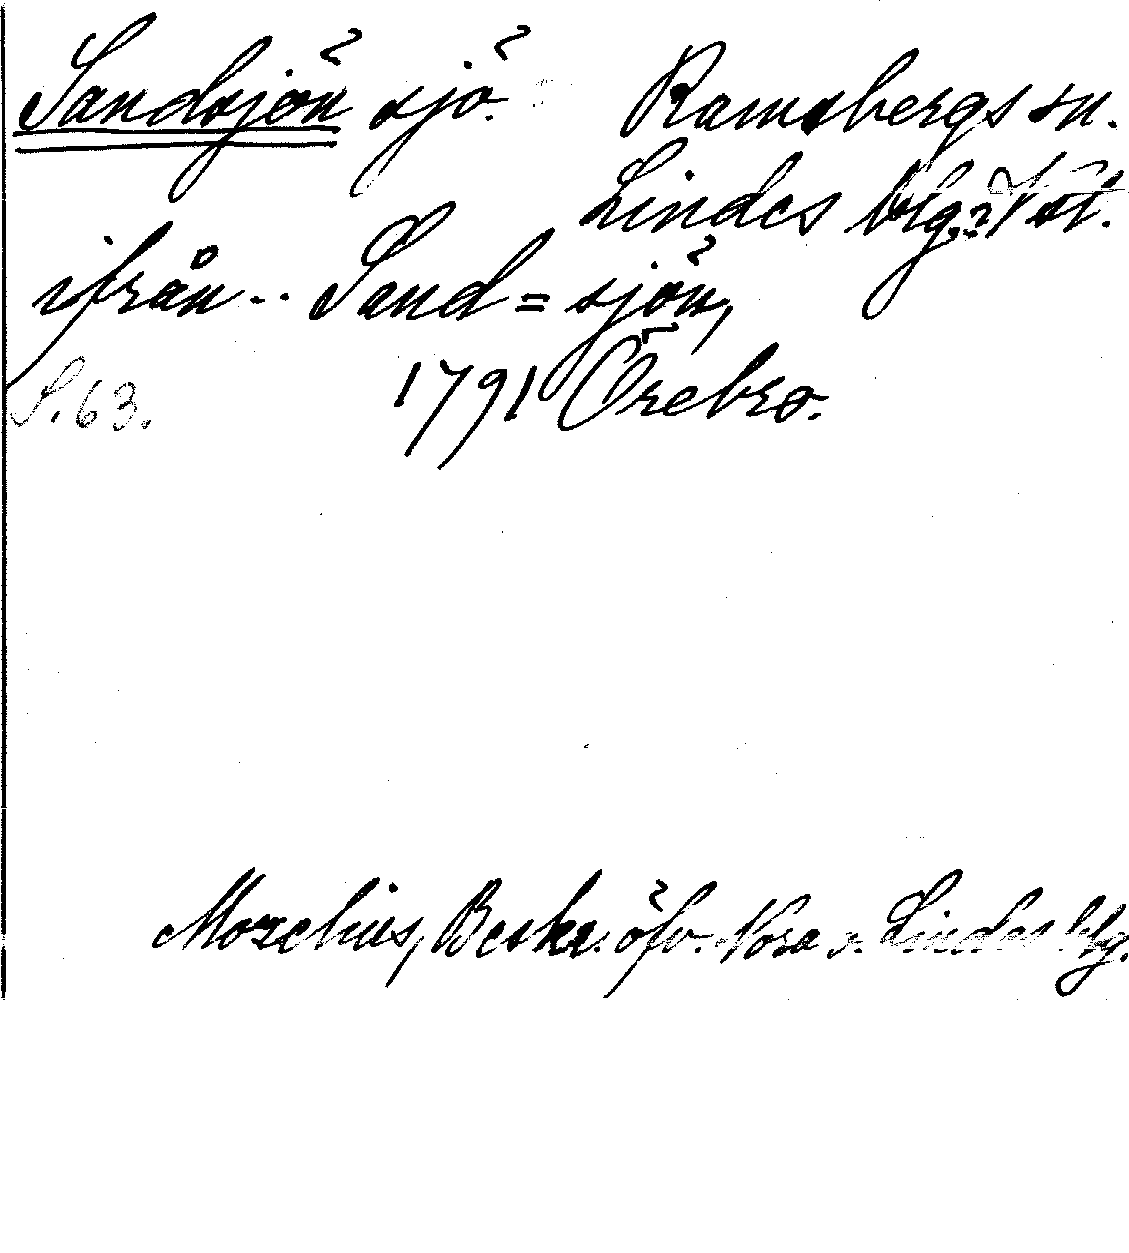 Sandsjön sjö. Ramsbergs sn.
Lindes blg. Vstm.
ifrån -- Sand = sjön,
S. 63. 1791 Örebro.
Mozelius, Beskr. öfv. Nora o. Lindes blg.